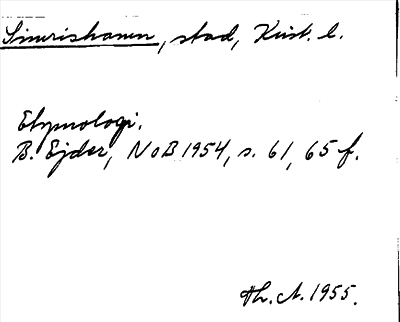 Simrishamn, stad, Krist. l.
Etymologi.
B. Ejder, NoB 1954, s. 61, 65 f.
Th. A. 1955.